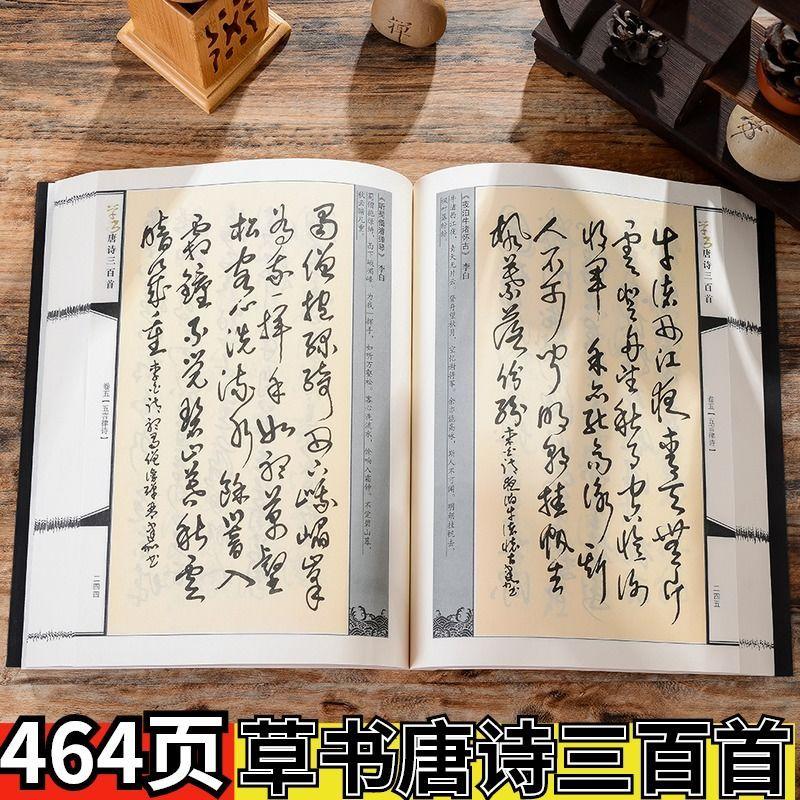 禅
草书唐诗三百首
卷五【五言律诗】
二四四
《听蜀僧濬弹琴》 李白
蜀僧抱绿绮，西下峨嵋峰。为我一挥手，如听万壑松。客心洗流水，馀响入霜钟。不觉碧山暮，
秋云暗几重。
蜀僧抱绿绮西下峨嵋峯
为我一挥手如听万壑
松客心洗流水馀响入
霜钟不觉碧山暮秋云
暗几重
李白诗听蜀僧濬弹琴
草书唐诗三百首
卷五【五言律诗】
二四五
《夜泊牛渚怀古》 李白
牛渚西江夜，青天无片云。登舟望秋月，空忆谢将军。余亦能高咏，斯人不可闻。明朝挂帆去，
枫叶落纷纷。
牛渚西江夜青天无片
云登舟望秋月空忆谢
将军余亦能高咏斯
人不可闻明朝挂帆去
枫叶落纷纷
李白诗夜泊牛渚怀古
464页 草书唐诗三百首